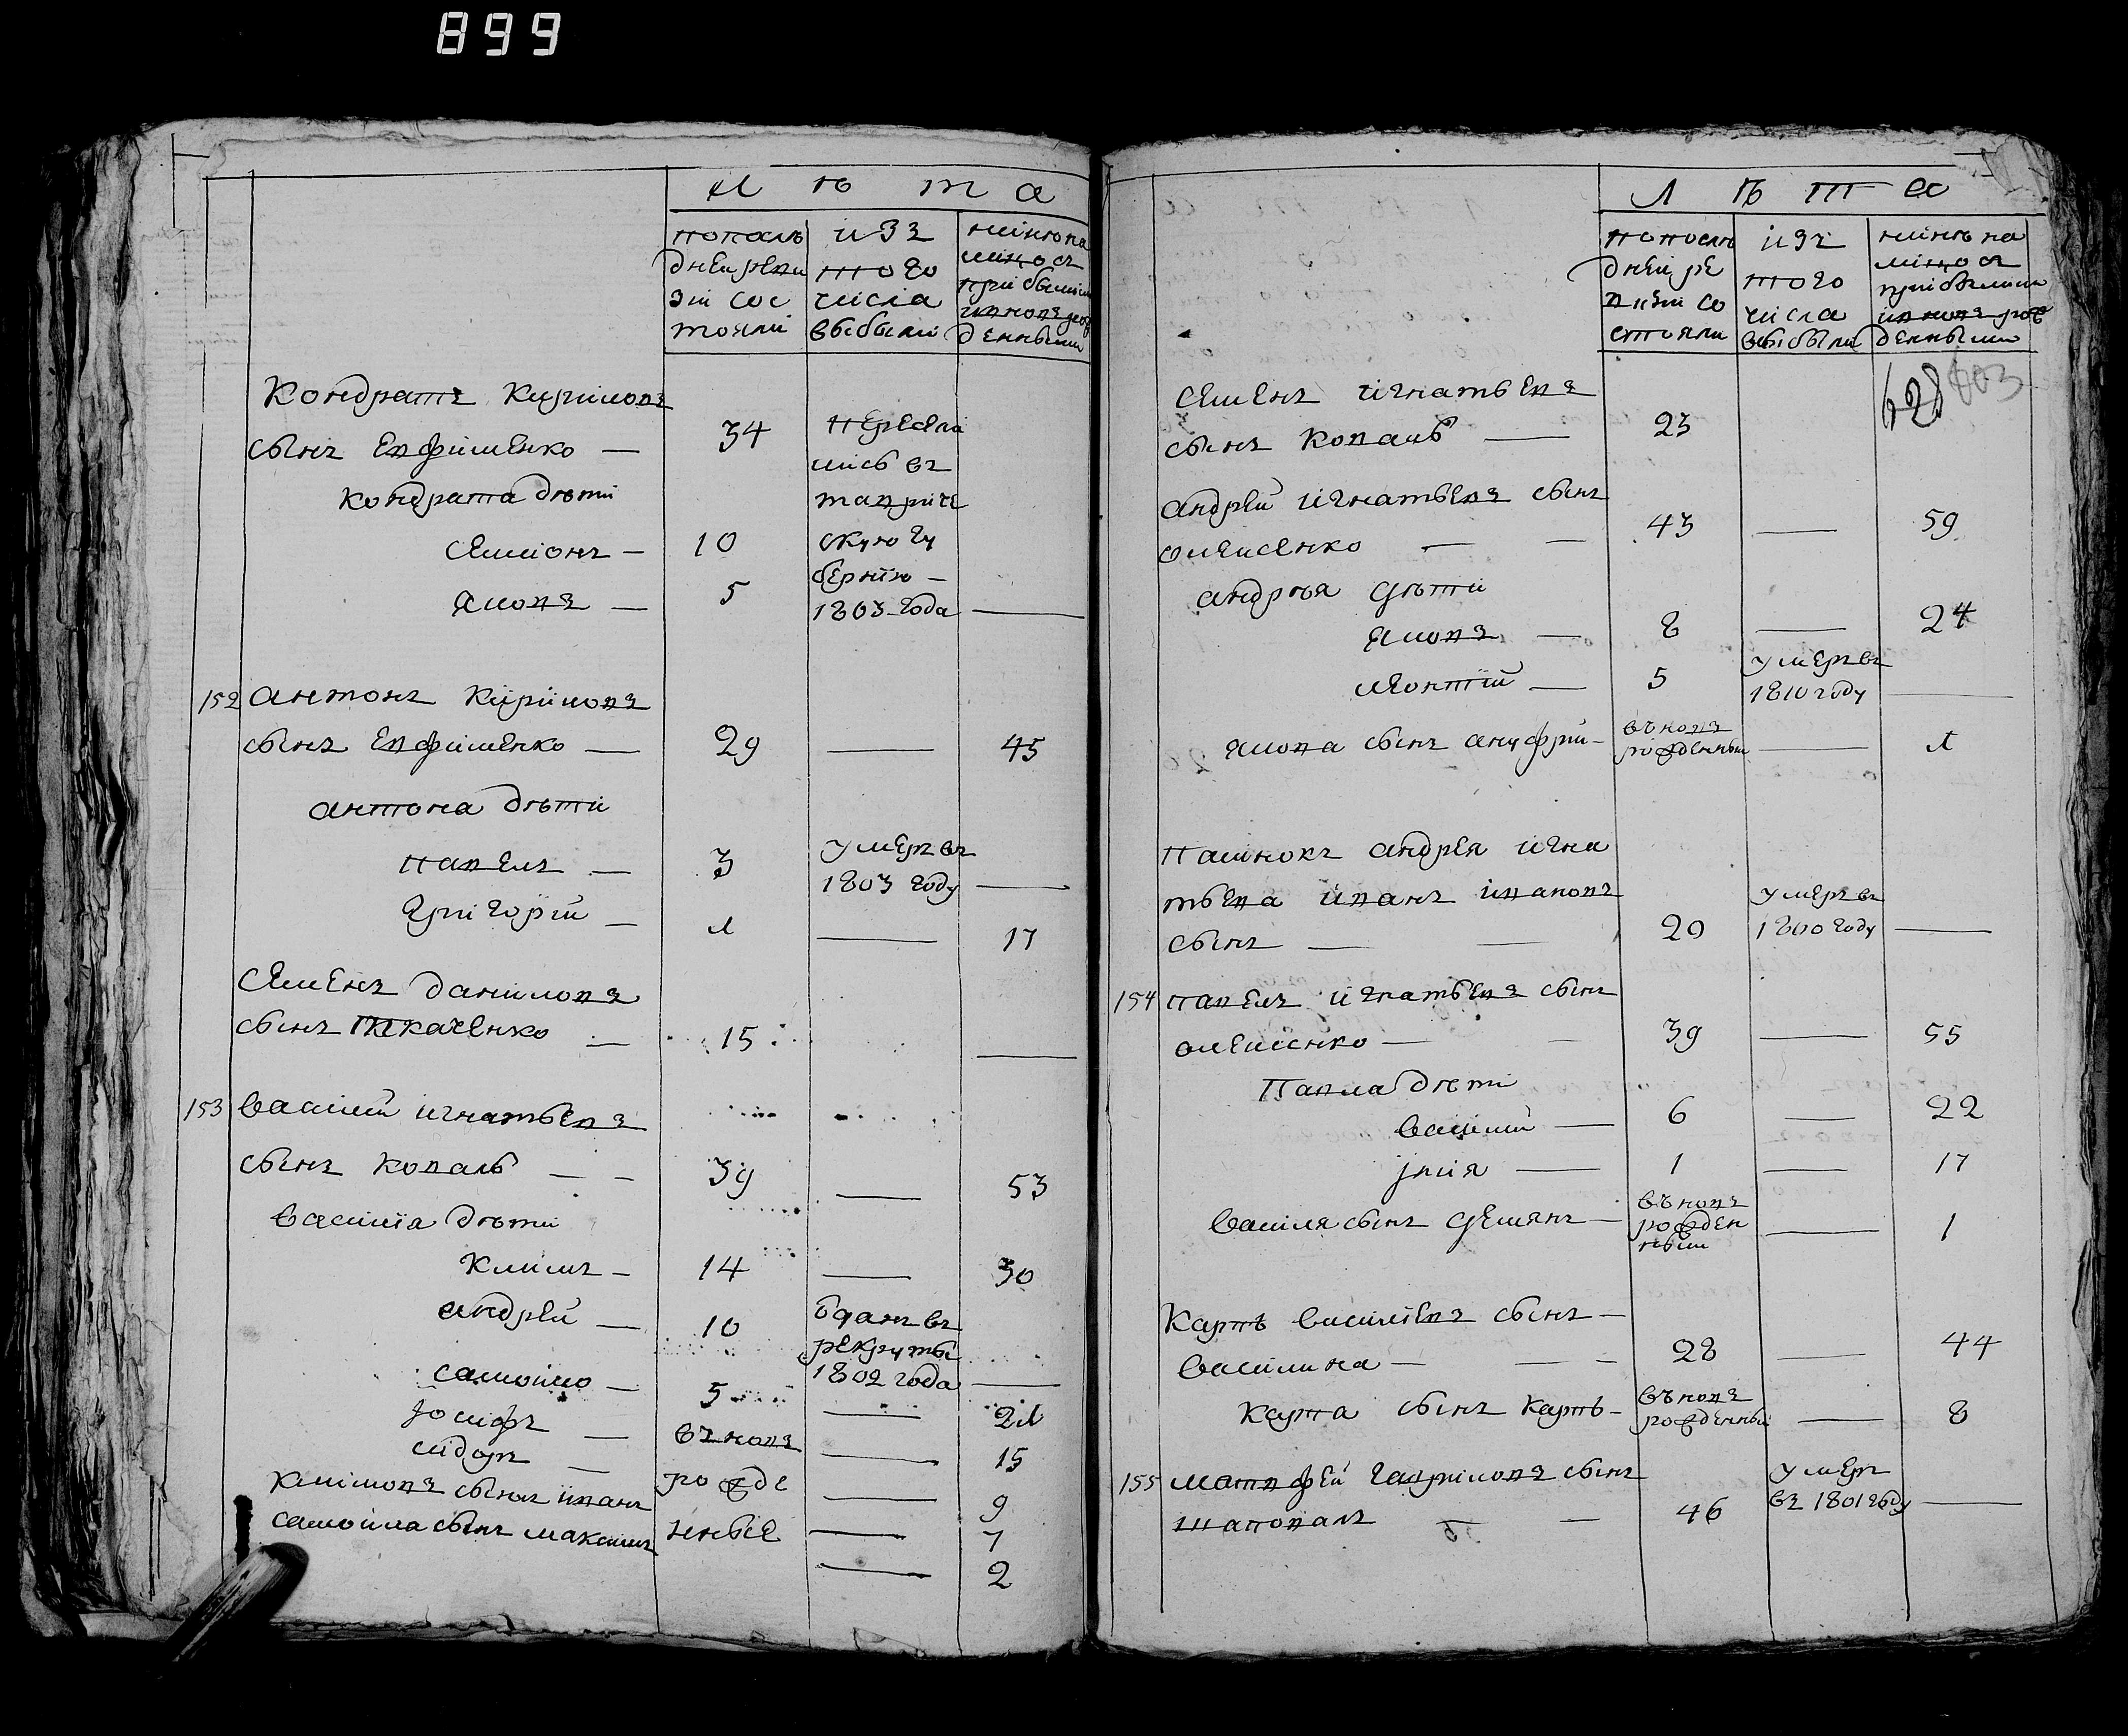 899
лѣта
попослѣ
дней реви
зіи сос
тояли
изъ
того
числа
выбыли
нинѣ на
лицо съ
прибылими
и вновь рож
денными
Кондратъ Кириловъ
сынъ Евфименко — 34
переселі
лись въ
тавриче
скую гу
бернію —
1803 года —
Кондрата дѣти
Семіонъ — 10
Яковъ — 5
152 Антонъ Кіриловъ
сынъ Евфименко — 29 — 45
Антона дѣти
Павелъ — 3 умеръ въ
1803 году —
Григорій — 1 — 17
Семенъ Даниловъ
сынъ Ткаченко — 15 —
153 Василий игнатьевъ
сынъ Коваль — — 39 — 53
Василія дѣти
Климъ — 14 — 30
Андрей — 10 одданъ въ
рекруты
1802 года —
Самойло — 5 — 21
Іосифъ — въ новъ — 15
Сидоръ — рожде — 9
Климовъ сынъ иванъ нные — 7
Самойла сынъ Максимъ — 2
лѣта
попослѣ
дней ре
визіи со
стояли
изъ
того
числа
выбыли
нинѣ на
лицо съ
прибылими
и вновь рож
денными
628 603
Семенъ игнатьевъ
сынъ Коваль — 23
Андрей игнатьевъ сынъ
Олексенко — — 43 — 59
Андрея дѣти
Яковъ — 8 — 24
Леонтій — 5 умеръ въ
1810 году —
Якова сынъ Ануфрій — въ новъ
рожденный — 1
Пасинокъ Андрея игна
тьева иванъ ивановъ
сынъ — — 20 умеръ въ
1800 году —
154 Павелъ игнатьевъ сынъ
Олексенко — — 39 — 55
Павла дѣти
Василий — 6 — 22
Илія — 1 — 17
Василя сынъ Демянъ — въ новъ
рожден
ный — 1
Карпъ Василіевъ сынъ —
Василина — — — 28 — 44
Карпа сынъ Карпъ — въ новъ
рожденный — 8
155 Матвфей Гавриловъ сынъ
Шаповалъ — — 46 умеръ
въ 1801 году —